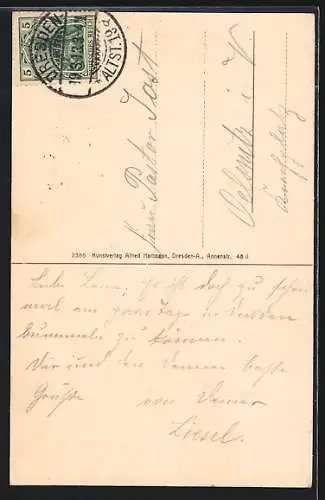 5 DEUTSCHES REICH 5
DRESDEN
ALTST. 19 d
Frau Pastor Jost
Oelsnitz i. V.
2386 Kunstverlag Alfred Hartmann, Dresden-A., Annenstr. 48 II
Liebe Es ist doch zu schön
mal ein paar Tage in Dresden
bummeln zu können.
Dir und den Deinen beste
Grüße von Deiner
Liesel.